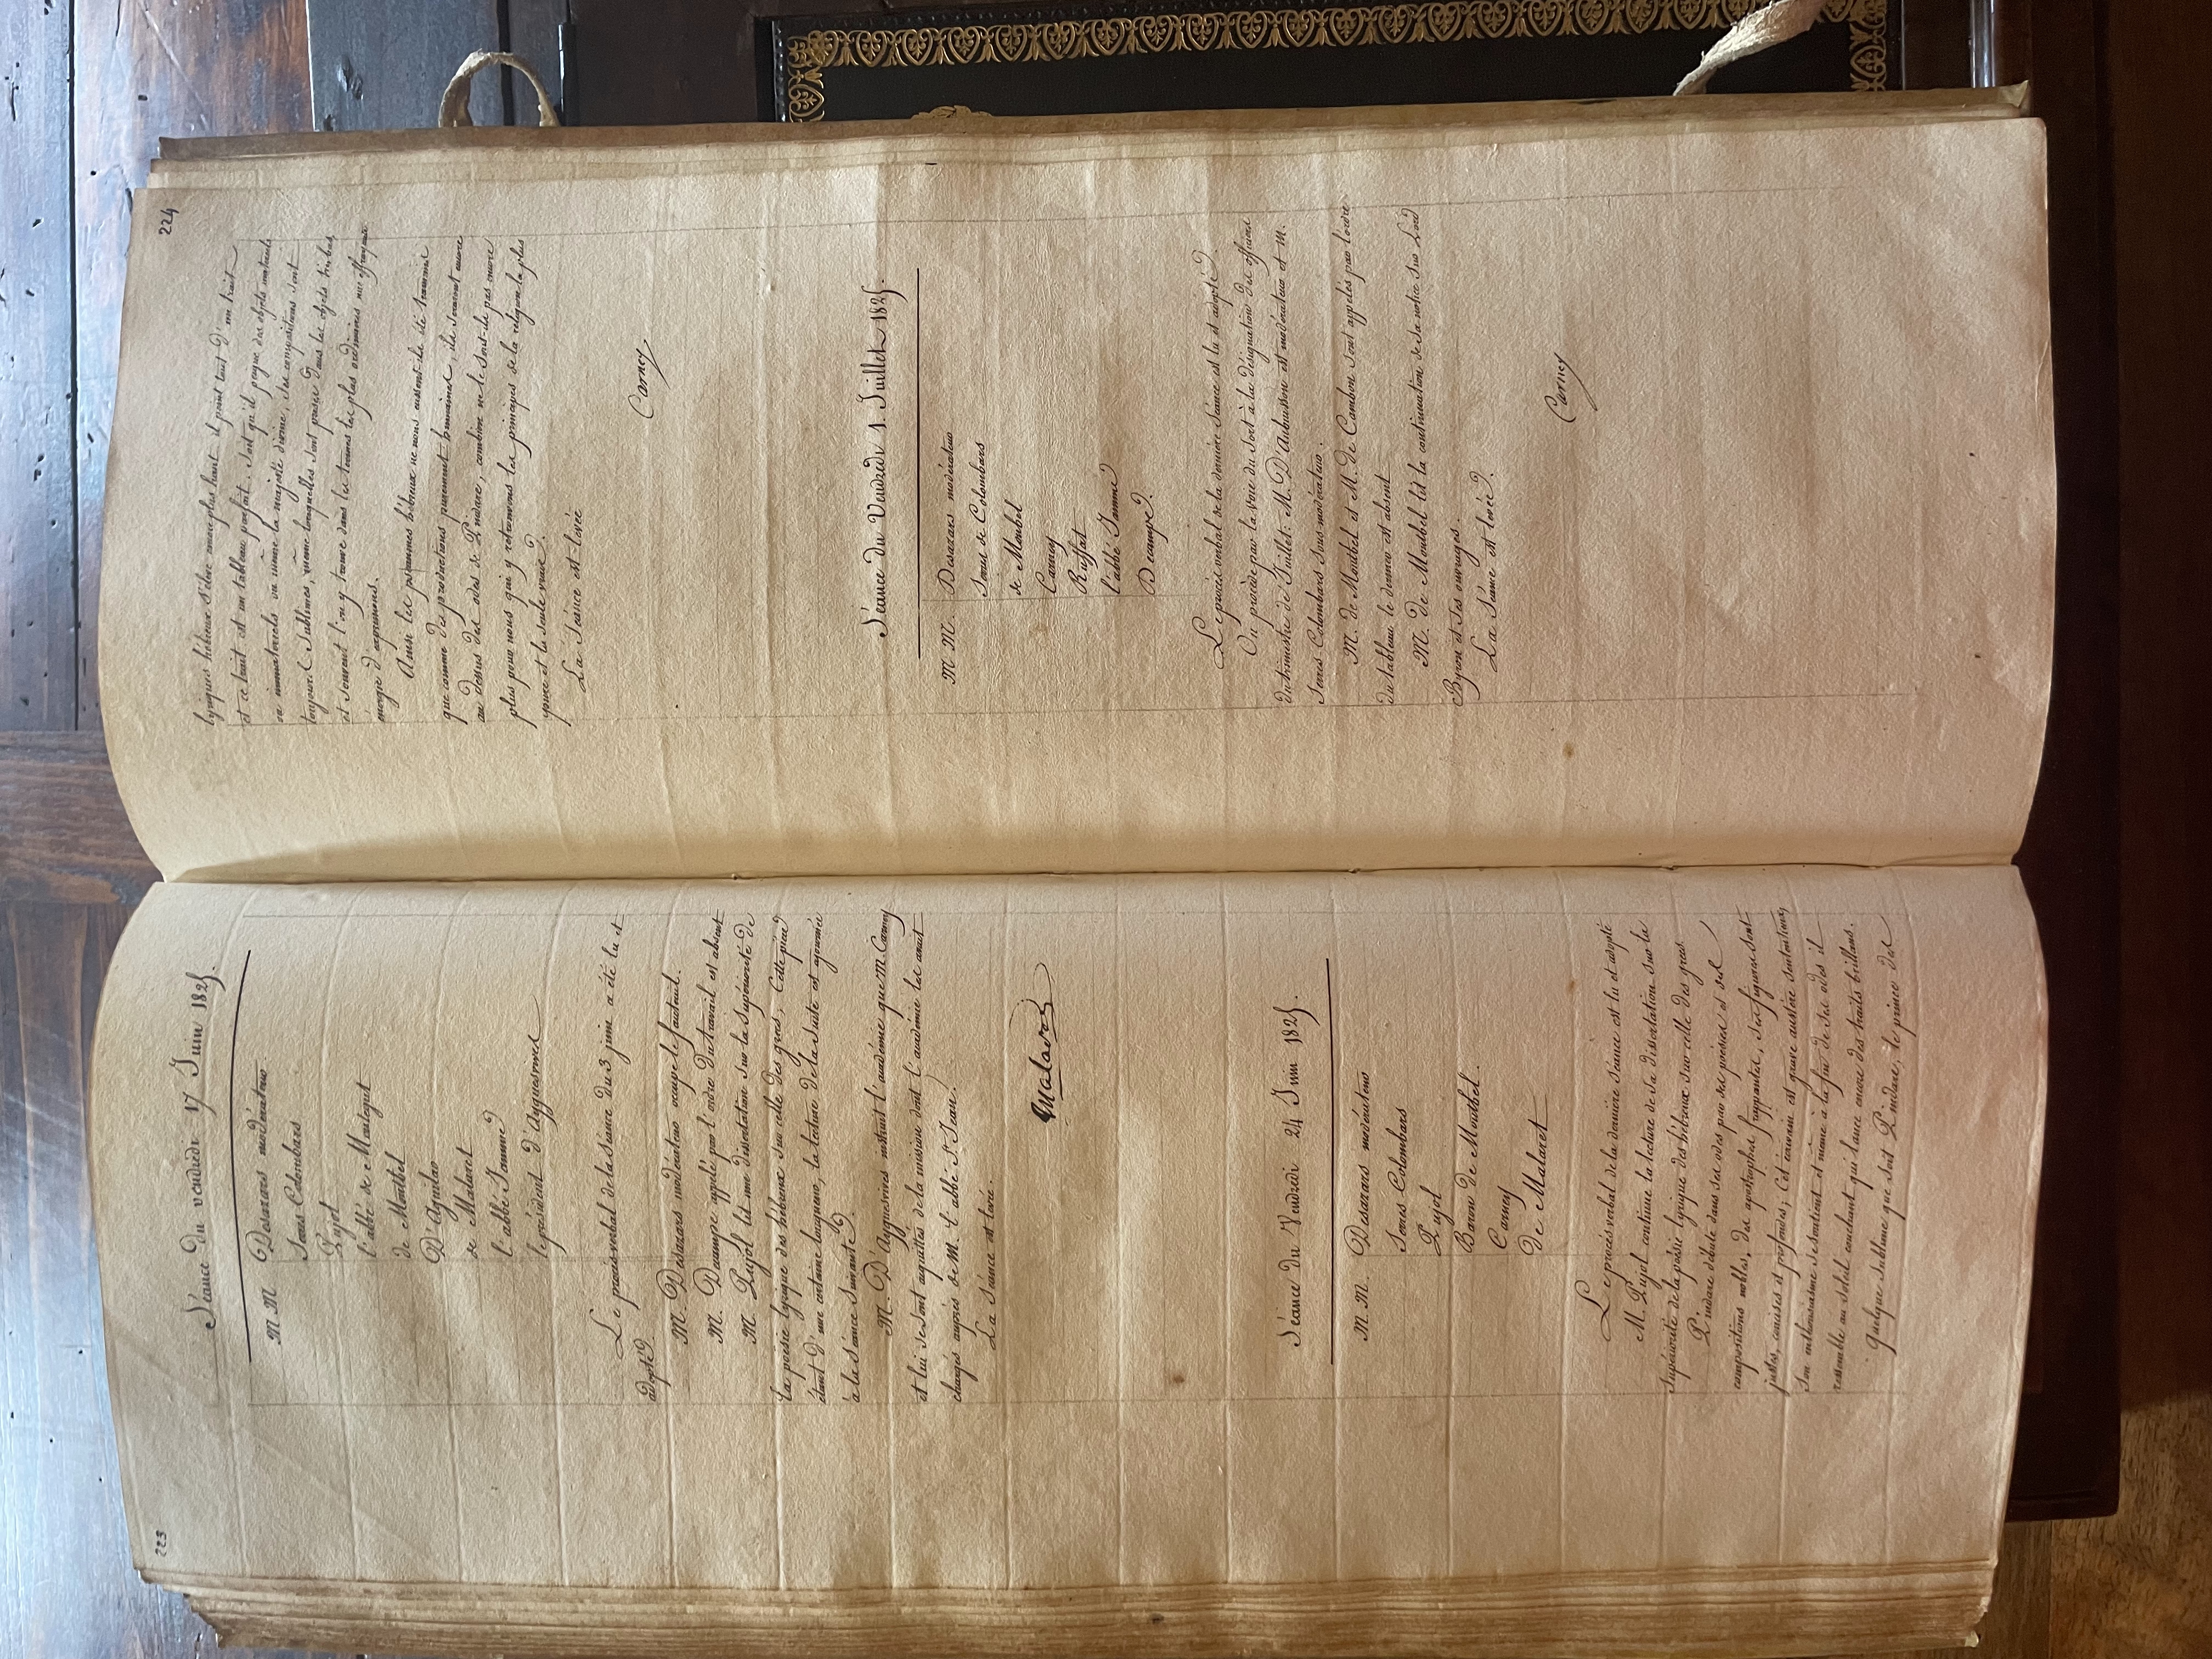 223
Séance du vendredi 17 Juin 1825.
MM Desazars modérateur
Serres Colombars
Pujol
l'abbé de Montegut
de Montbel
D'Aguilar
de Malaret
l'abbé Jamme
le président d'Ayguesvives
Le procès verbal de la séance du 3 juin a été lu et
adopté.
M. Desazars modérateur occupe le fauteuil.
M. Decampe appelé par l'ordre du travail est absent
M. Pujol lit une dissertation sur la supériorité de
la poésie lyrique des hébreux sur celle des grecs, cette pièce
étant d'une certaine longueur, la lecture de la suite est ajournée
à la séance suivante.
M. D'Ayguesvives instruit l'académie que M. Carney
et lui se sont acquittés de la mission dont l'académie les avait
chargés auprès de M. l'abbé St. Jean.
La séance est levée.
Malaret
Séance du Vendredi 24 Juin 1825.
M. M. Desazars modérateur
Serres Colombars
Pujol
Baron de Montbel.
Carney
De Malaret
Le procès verbal de la dernière séance est lu et adopté
M. Pujol continue la lecture de sa dissertation sur la
supériorité de la poésie lyrique des hébreux sur celle des grecs
Pindare débute dans ses odes par ses poésies et des
compositions nobles, des apostrophes frappantes, ses figures sont
justes, concises et profondes; Cet écrivain est grave austère sentencieux,
Son enthousiasme se soutient et même à la fin de ses odes il
ressemble au soleil couchant qui lance encore des traits brillans.
Quelque sublime que soit Pindare, le prince des
224
lyriques hébreux s'élève encore plus haut il peint tout d'un trait
et ce trait est un tableau parfait. Soit qu'il peigne des objets matériels
ou immatériels ou même la majesté divine, ses compositions sont
toujours sublimes, même lorsqu'elles sont puisées dans les objets triviaux
et souvent l'on y trouve dans les termes les plus ordinaires une effrayante
énergie d'expressions.
Ainsi les psaumes hébreux ne nous eussent-ils été transmis
que comme des productions purement humaines, ils seraient encore
au dessus des odes de Pindare, combien ne le sont-ils pas encore
plus pour nous qui y retrouvons les principes de la religion la plus
pure et la seule vraie.
La Séance est levée
Carney
Séance du Vendredi 1. Juillet 1825.
M M. Desazars modérateur
Serres de Colombars
de Montbel
Carney
Ruffat
l'abbé Jamme
Decampe.
Le procès verbal de la dernière séance est lu et adopté.
On procède par la voie du sort à la désignation des officiers
du trimestre de Juillet. M. D'Aubuisson est modérateur et M.
Serres Colombars sous-modérateur.
M. de Montbel et M. de Cambon sont appelés par l'ordre
du tableau le dernier est absent
M. de Montbel lit la continuation de sa notice sur Lord
Byron et ses ouvrages.
La Séance est levée.
Carney